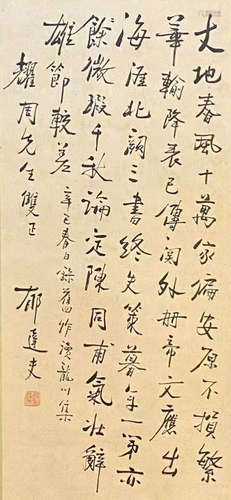 大地春風十萬家偏安原不損繁
華輸降表已傳關外冊帝文應出
海涯北闕三書終失策暮年一第亦
餘微瑕千秋論定陳同甫氣壯辭
雄節較差
辛巳春日錄舊作讀龍川集
耀周先生雙正
郁達夫